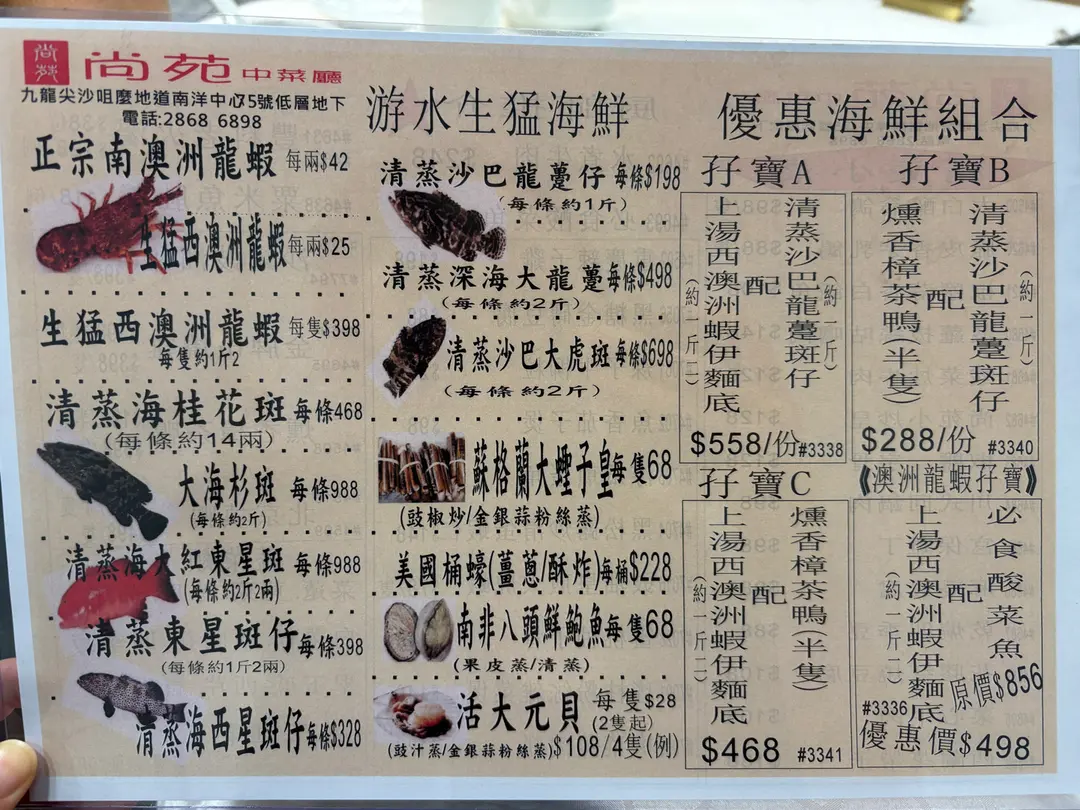 尚苑
尚苑中菜廳
九龍尖沙咀麼地道南洋中心75號低層地下
電話:2868 6898
正宗南澳洲龍蝦 每兩$42
生猛西澳洲龍蝦 每兩$25
生猛西澳洲龍蝦 每隻$398
每隻約1斤2
清蒸海桂花斑 每條468
(每條約14兩)
大海杉斑 每條988
(每條約2斤)
清蒸海大紅東星斑 每條988
(每條約2斤2兩)
清蒸東星斑仔 每條398
(每條約1斤2兩)
清蒸海西星斑仔 每條$328
游水生猛海鮮
清蒸沙巴龍躉仔 每條$198
(每條約1斤)
清蒸深海大龍躉 每條$498
(每條約2斤)
清蒸沙巴大虎斑 每條$698
(每條約2斤)
蘇格蘭大蟶子皇 每隻68
(豉椒炒/金銀蒜粉絲蒸)
美國桶蠔(薑蔥/酥炸) 每桶$228
南非八頭鮮鮑魚 每隻68
(果皮蒸/清蒸)
活大元貝 每隻$28
(2隻起)
(豉汁蒸/金銀蒜粉絲蒸) $108/4隻(例)
優惠海鮮組合
孖寶A
清蒸沙巴龍躉斑仔
(約一斤)
配
上湯西澳洲蝦伊麵底
(約一斤二)
$558/份 #3338
孖寶B
清蒸沙巴龍躉斑仔
(約一斤)
配
燻香樟茶鴨(半隻)
$288/份 #3340
孖寶C
燻香樟茶鴨(半隻)
配
上湯西澳洲蝦伊麵底
(約一斤二)
$468 #3341
《澳洲龍蝦孖寶》
必食酸菜魚
配
上湯西澳洲蝦伊麵底
(約一斤二)
原價$856
#3336
優惠價$498